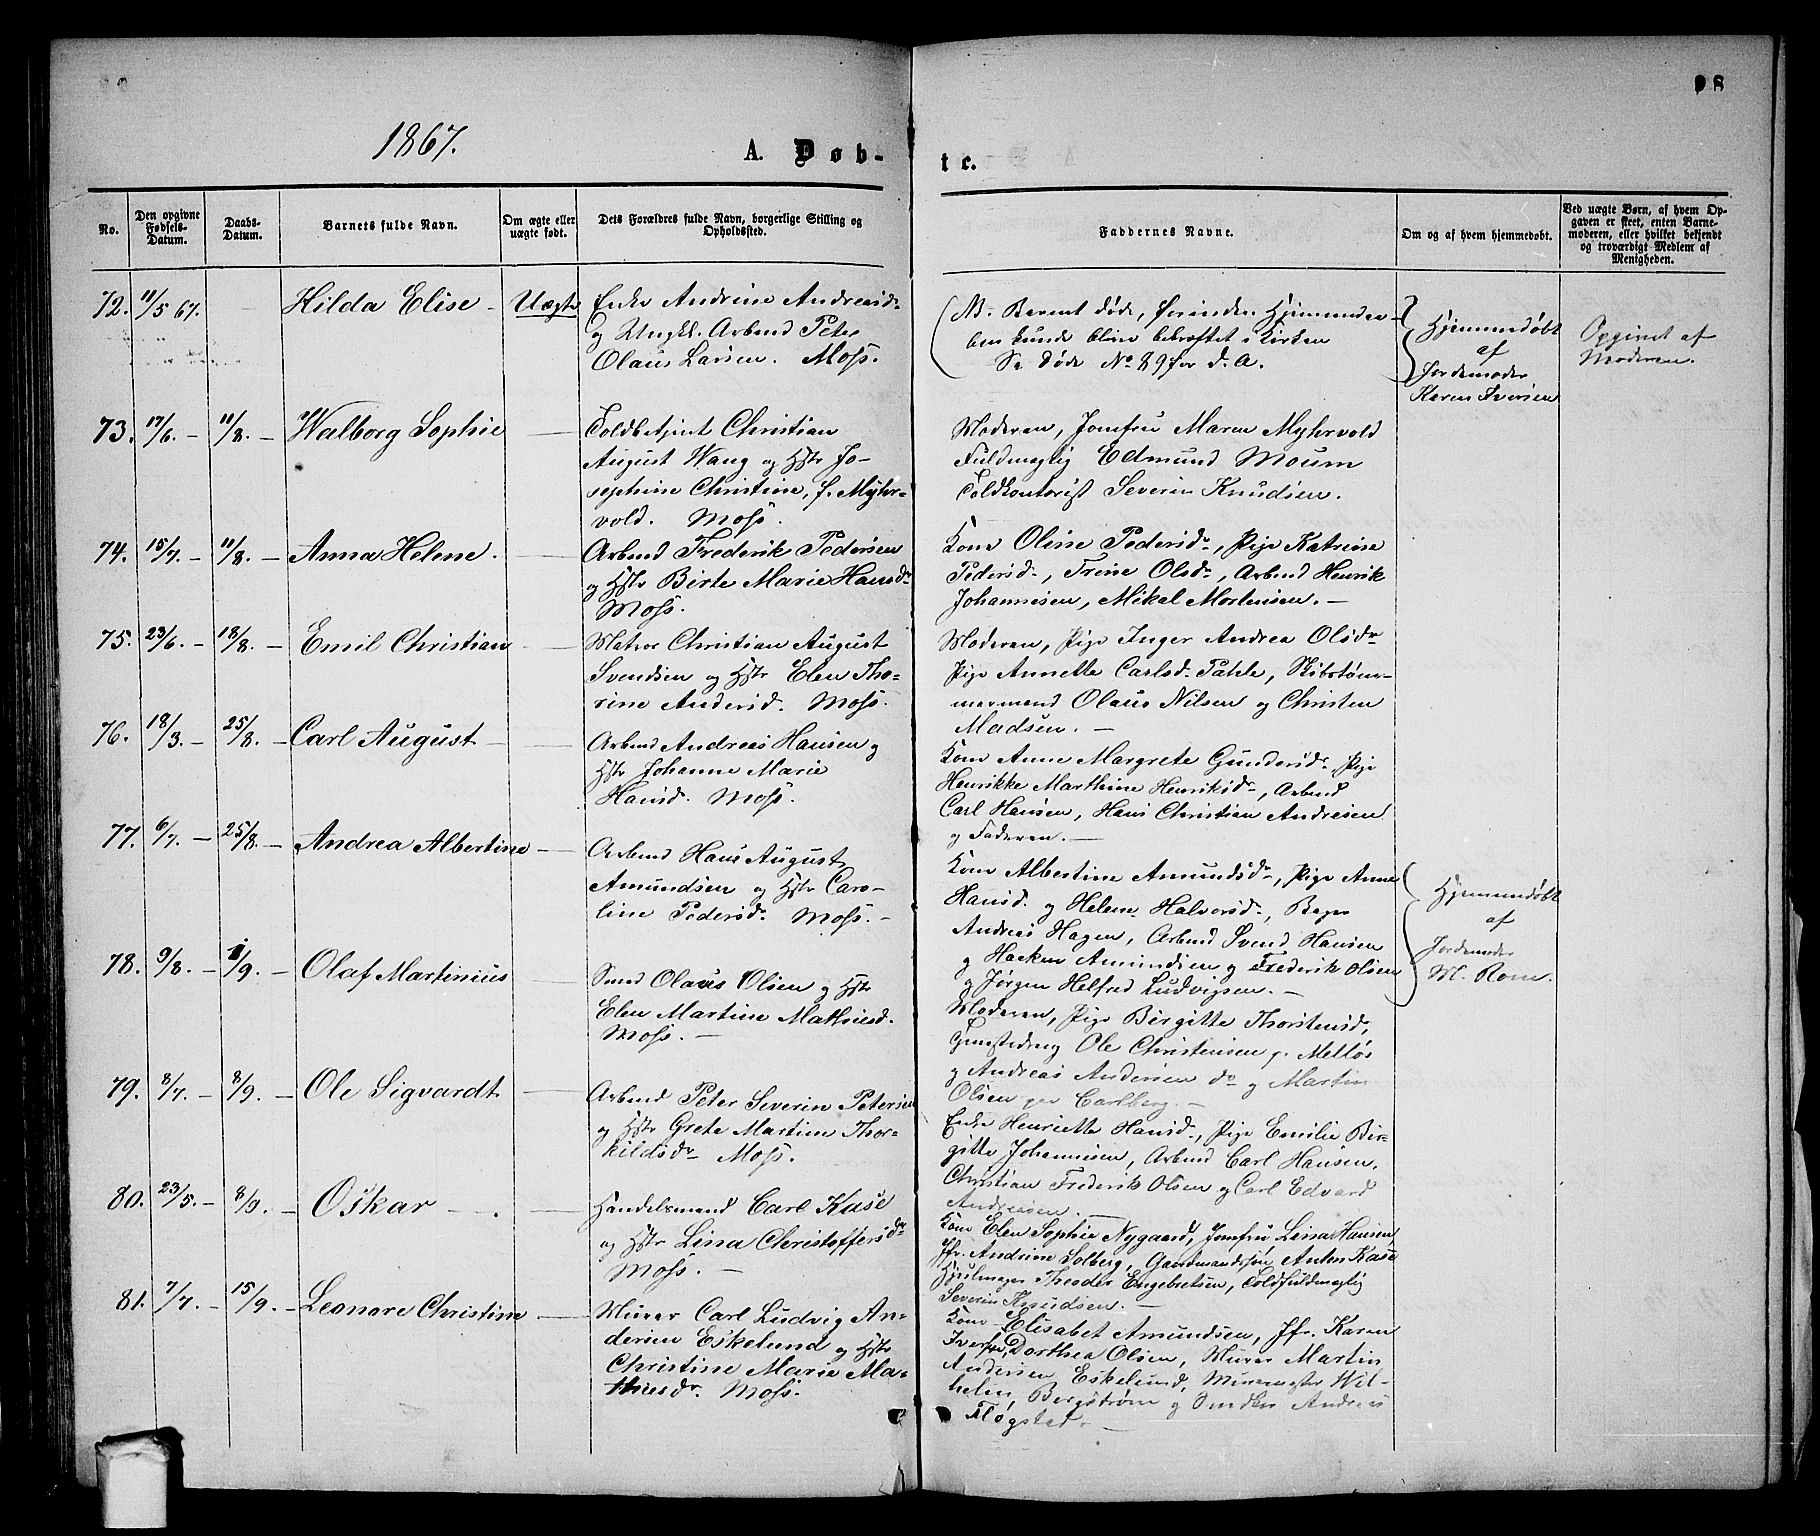 98
1867.
A. Døb-
te.
No.
Den opgivne Fødsels-Datum.
Daabs-Datum.
Barnets fulde Navn.
Om ægte eller uægte født.
Dets Forældres fulde Navn, borgerlige Stilling og Opholdssted.
Faddernes Navne.
Om og af hvem hjemmedøbt.
Ved uægte Børn, af hvem Opgaven er skeet, enten Barnemoderen, eller hvilket bekjendt og troværdigt Medlem af Menigheden.
72. 11/5 67. Hilda Elise - Uægte
Enke Andrine Andreasd.
og Ungkl. Arbmd Peter
Olaus Larsen. Moss.
Barnet døde, førend Hjemmedaa-
ben kunde blive bekræftet i Kirken
Se Døde No 89 for d. A.
Hjemmedøbt
af
Jordemoder
Karen Iversen
Opgivet af
Moderen.
73. 17/6. - 11/8. - Walborg Sophie
Toldbetjent Christian
August Wang og Hstr Jo-
sephine Christine, f. Myhr-
vold. Moss.
Moderen, Jomfru Maren Myhrvold
Fuldmægtig Edmund Moum
Toldkontorist Severin Knudsen.
74. 15/7. - 11/8. - Anna Helene.
Arbmd Frederik Pedersen
og Hstr Birte Marie Hansdr
Moss.
Kone Oline Pedersdr, Pige Katrine
Pedersdr, Trine Olsdr, Arbmd Henrik
Johannesen, Mikal Mortensen. -
75. 23/6. - 18/8. - Emil Christian
Matros Christian August
Svendsen og Hstr Elen Tho-
rine Andersd. Moss.
Moderen, Pige Inger Andrea Olsdr
Pige Annette Carlsd. Pahle, Skibstøm-
mermand Olaus Nilsen og Christen
Madsen. -
76. 18/3. - 25/8. - Carl August
Arbmd Andreas Hansen og
Hstr Johanne Marie
Hansd. Moss.
Kone Anne Margrete Gundersdr Pige
Henrikke Marthine Henriksdr, Arbmd
Carl Hansen, Hans Christian Andresen
og Faderen. -
77. 6/7. - 25/8. - Andrea Albertine
Arbmd Hans August
Amundsen og Hstr Caro-
line Pedersdr. Moss. -
Kone Albertine Amundsdr, Pige Anne
Hansd. og Helene Halvorsdr, Bager
Andreas Hagen, Arbmd Svend Hansen
og Haeken Amundsen og Frederik Olsen
og Jørgen Helfred Ludvigsen. -
Hjemmedøbt
af
Jordemoder
M. Rom.
78. 9/8. - 1/9. - Olaf Martinius
Smed Olaves Olsen og Hstr
Elen Martine Mathiesd.
Moss. -
Moderen, Pige Birgitte Thorstensd,
Ole Christensen p. Melløs
og Andreas Andersen do og Martin
Olsen paa Carlberg. -
79. 8/7. - 8/9. - Ole Sigvardt
Arbmd Peter Severin Petersen
og Hstr Grete Martine Thor-
kildsdr Moss.
Enke Henriette Hansd., Pige Emilie Bir-
gitte Johannesen, Arbmd Carl Hansen,
Christian Frederik Olsen og Carl Edvard
Andresen. -
80. 23/5. - 8/9. - Oskar
Handelsmand Carl Kase
og Hstr Lina Christoffersdr
Moss. -
Kone Elen Sophie Nygaard, Jomfru Lina Hansen,
Jfr. Andrine Solberg, Gaardmandssøn Anten Kase
Hjulmager Theodor Engebretsen, Toldfuldmægtig
Severin Knudsen. -
81. 7/7. - 15/9. - Leonore Christine
Murer Carl Ludvig An-
dersen Eskelund og Hstr
Christine Marie Ma-
thiesdr. Moss.
Kone Elisabet Amundsen, Jfr. Karen
Iversen, Dorthea Olsen, Murer Martin
Andersen Eskelund, Murmester Wil-
helm Bergstrøm og Andreas
Fløgstad. -